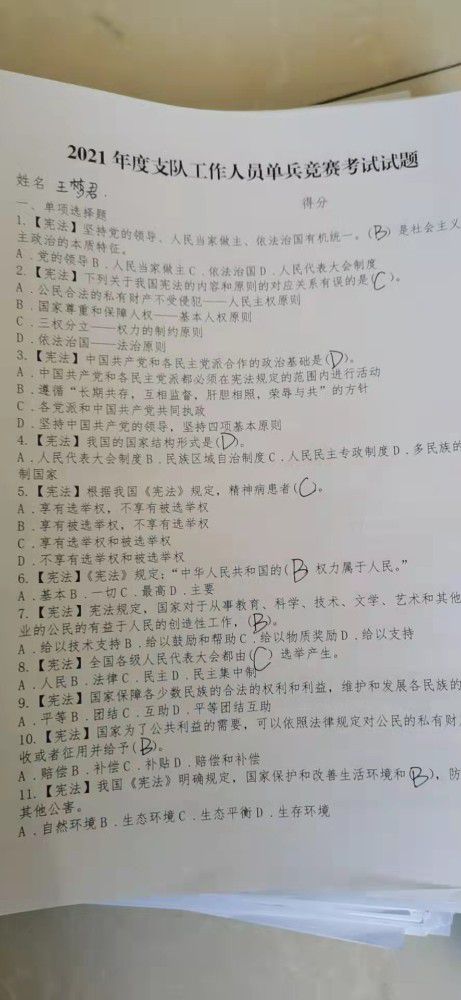 2021 年度支队工作人员单兵竞赛考试试题
姓名 王梦君. 得分
一、单项选择题
1.【宪法】坚持党的领导、人民当家做主、依法治国有机统一。(B) 是社会主义
主政治的本质特征。
A．党的领导 B．人民当家做主 C．依法治国 D．人民代表大会制度
2.【宪法】下列关于我国宪法的内容和原则的对应关系有误的是(C)。
A．公民合法的私有财产不受侵犯——人民主权原则
B．国家尊重和保障人权——基本人权原则
C．三权分立——权力的制约原则
D．依法治国——法治原则
3.【宪法】中国共产党和各民主党派合作的政治基础是(D)。
A．中国共产党和各民主党派都必须在宪法规定的范围内进行活动
B．遵循“长期共存，互相监督，肝胆相照，荣辱与共”的方针
C．各党派和中国共产党共同执政
D．坚持中国共产党的领导，坚持四项基本原则
4.【宪法】我国的国家结构形式是(D)。
A．人民代表大会制度 B．民族区域自治制度 C．人民民主专政制度 D．多民族的
制国家
5.【宪法】根据我国《宪法》规定，精神病患者(C)。
A．享有选举权，不享有被选举权
B．享有被选举权，不享有选举权
C．享有选举权和被选举权
D．不享有选举权和被选举权
6.【宪法】《宪法》规定：“中华人民共和国的(B) 权力属于人民。”
A．基本 B．一切 C．最高 D．主要
7.【宪法】宪法规定，国家对于从事教育、科学、技术、文学、艺术和其他
业的公民的有益于人民的创造性工作，(B)。
A．给以技术支持 B．给以鼓励和帮助 C．给以物质奖励 D．给以支持
8.【宪法】全国各级人民代表大会都由(C) 选举产生。
A．人民 B．法律 C．民主 D．民主集中制
9.【宪法】国家保障各少数民族的合法的权利和利益，维护和发展各民族的
A．平等 B．团结 C．互助 D．平等团结互助
10.【宪法】国家为了公共利益的需要，可以依照法律规定对公民的私有财
收或者征用并给予(B)。
A．赔偿 B．补偿 C．补贴 D．赔偿和补偿
11.【宪法】我国《宪法》明确规定，国家保护和改善生活环境和(B)，防
其他公害。
A．自然环境 B．生态环境 C．生态平衡 D．生存环境